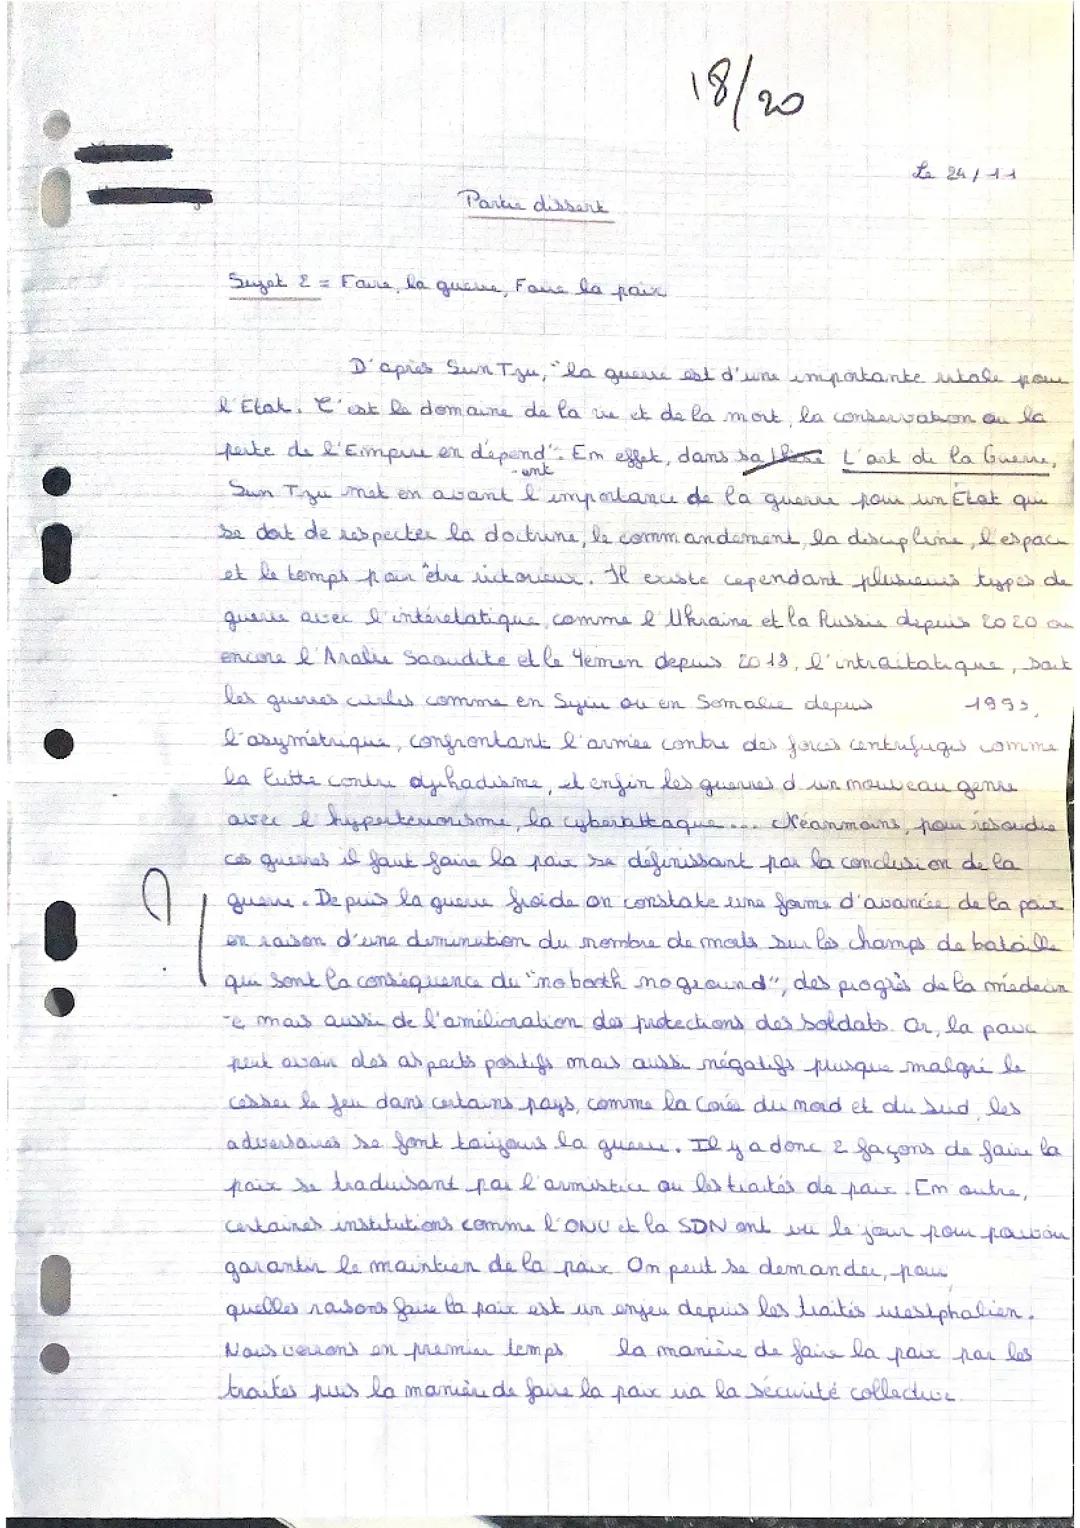 18/20
Le 24/11
Partie dissert
Sujet 2 = Faire la guerre, Faire la paix
D'après Sun Tzu, "la guerre est d'une importante vitale pour
l'Etat. C'est le domaine de la vie et de la mort, la conservation ou la
perte de l'Empire en dépend". En effet, dans L'art de la Guerre,
Sun Tzu met en avant l'importance de la guerre pour un État qui
se doit de respecter la doctrine, le commandement, la discipline, l'espace
et le temps pour être victorieux. Il existe cependant plusieurs types de
guerre avec l'interétatique, comme l'Ukraine et la Russie depuis 2020 ou
encore l'Arabie Saoudite et le Yémen depuis 2018, l'intraétatique, soit
les guerres civiles comme en Syrie ou en Somalie depuis 1993,
l'asymétrique, confrontant l'armée contre des forces centrifuges comme
la lutte contre djihadisme, et enfin les guerres d'un nouveau genre
avec l'hyperterrorisme, la cyberattaque... Néanmoins, pour résoudre
ces guerres il faut faire la paix se définissant par la conclusion de la
? guerre. Depuis la guerre froide on constate une forme d'avancée de la paix
en raison d'une diminution du nombre de morts sur les champs de bataille
qui sont la conséquence du "no booth no ground", des progrès de la médecin
-e mais aussi de l'amélioration des protections des soldats. Or, la paix
peut avoir des aspects positifs mais aussi négatifs puisque malgré le
cesser le feu dans certains pays, comme la Corée du nord et du Sud, les
adversaires se font toujours la guerre. Il y a donc 2 façons de faire la
paix se traduisant par l'armistice ou les traités de paix. En outre,
certaines institutions comme l'ONU et la SDN ont vu le jour pour pouvoir
garantir le maintien de la paix. On peut se demander, pour
quelles raisons faire la paix est un enjeu depuis les traités westphalien.
Nous verrons en premier temps la manière de faire la paix par les
traités puis la manière de faire la paix via la sécurité collective.